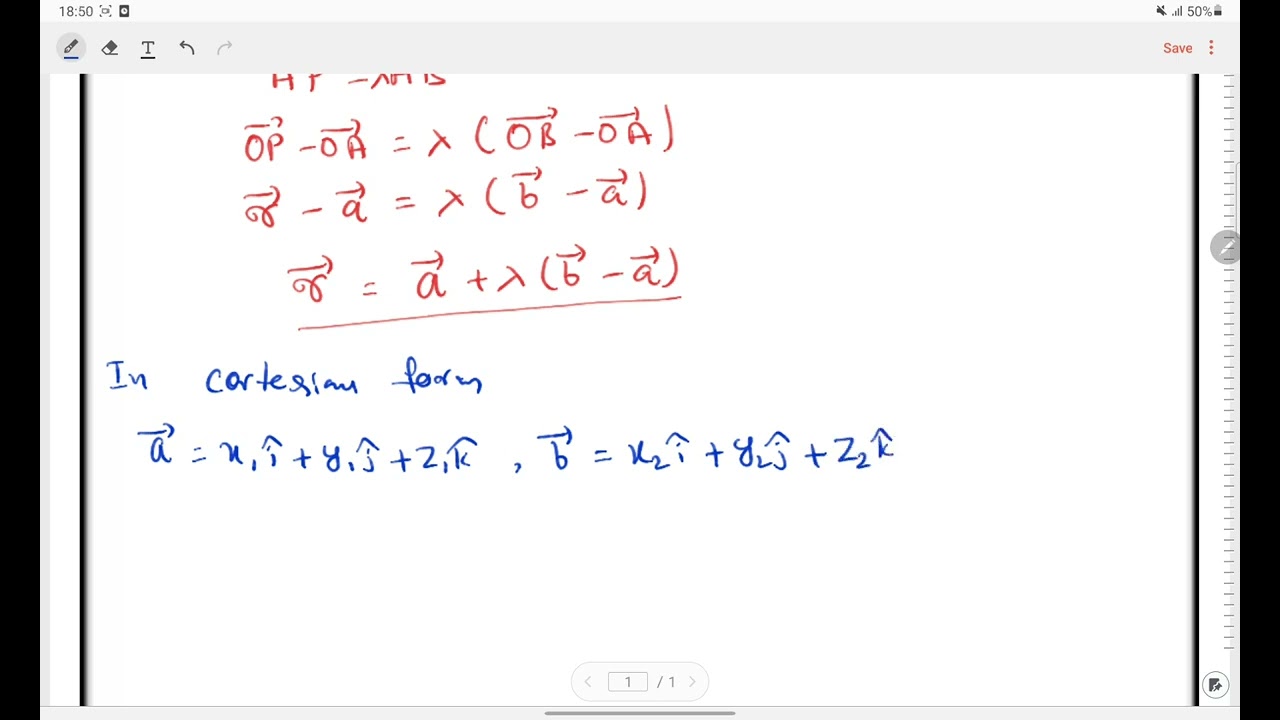 18:50 50%
T Save
OP⃗ - OA⃗ = λ (OB⃗ - OA⃗)
r⃗ - a⃗ = λ (b⃗ - a⃗)
r⃗ = a⃗ + λ (b⃗ - a⃗)
In cartesian form
a⃗ = x₁î + y₁ĵ + z₁k̂ , b⃗ = x₂î + y₂ĵ + z₂k̂
1 / 1